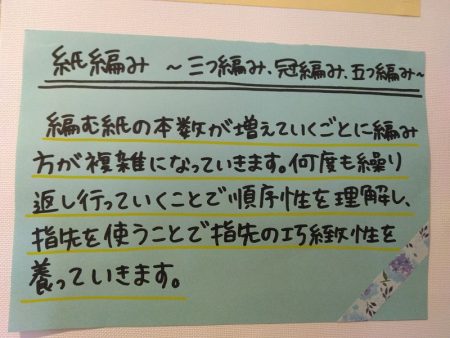 紙編み ～三つ編み、冠編み、五つ編み～
編む紙の本数が増えていくごとに編み
方が複雑になっていきます。何度も繰り
返し行っていくことで順序性を理解し、
指先を使うことで指先の巧緻性を
養っていきます。